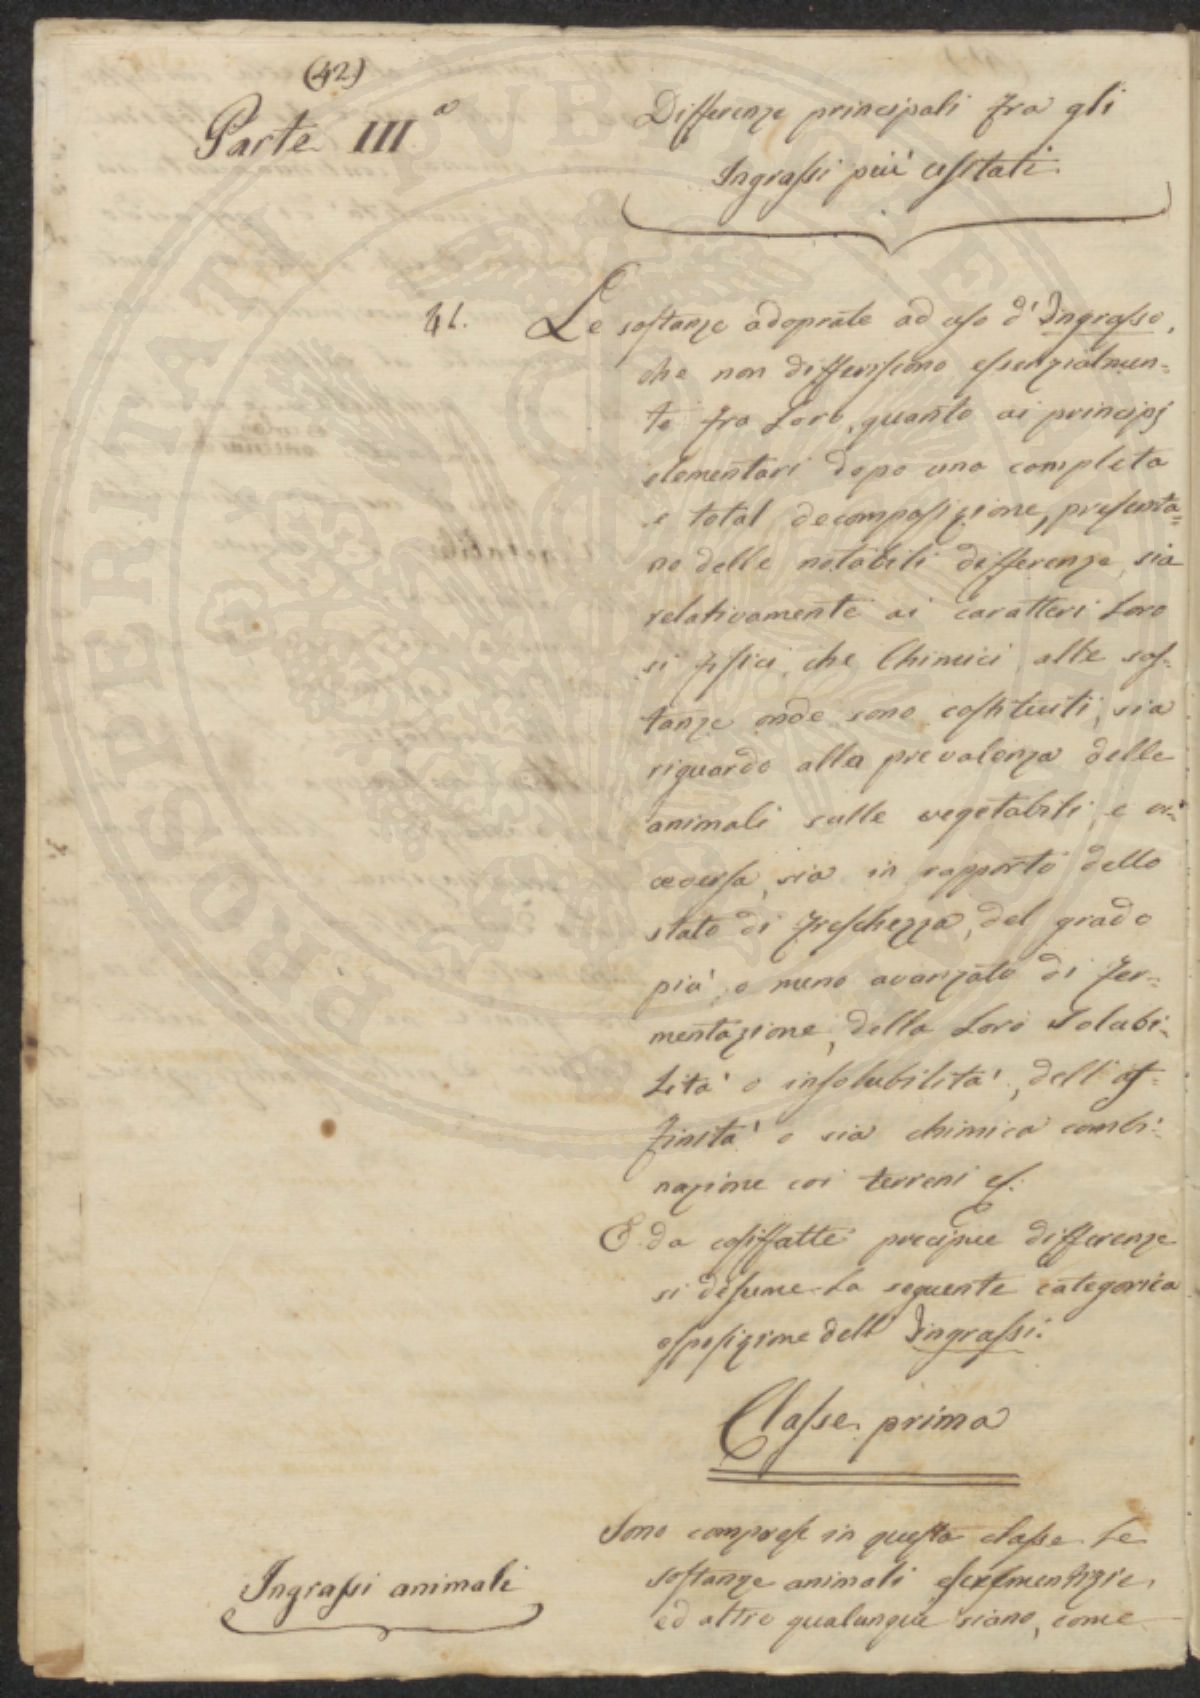 (42)
Parte III.a
Differenze principali fra gli
Ingrassi più usitati.
41. Le sostanze adoprate ad uso d'Ingrasso,
che non differiscono essenzialmen=
te fra Loro, quanto ai principj
elementari dopo una completa
e total decomposizione, presenta=
no delle notabili differenze, sia
relativamente ai caratteri Loro
si fisici, che Chimici, alle sos=
tanze onde sono costituiti, sia
riguardo alla prevalenza delle
animali sulle vegetabili, e vi=
ceversa, sia in rapporto dello
stato di freschezza, del grado
più, o meno avanzato di fer=
mentazione, della Loro Solubi=
lità o insolubilità, dell'af=
finità o sia chimica combi=
nazione coi terreni
E da cosiffatte precipue differenze
si desume La seguente categorica
esposizione dell' Ingrassi:
Classe prima
Sono comprese in questa classe Le
Ingrassi animali
sostanze animali escrementizie,
ed altre qualunque siano, come
PROSPERITATI PUBLICAE